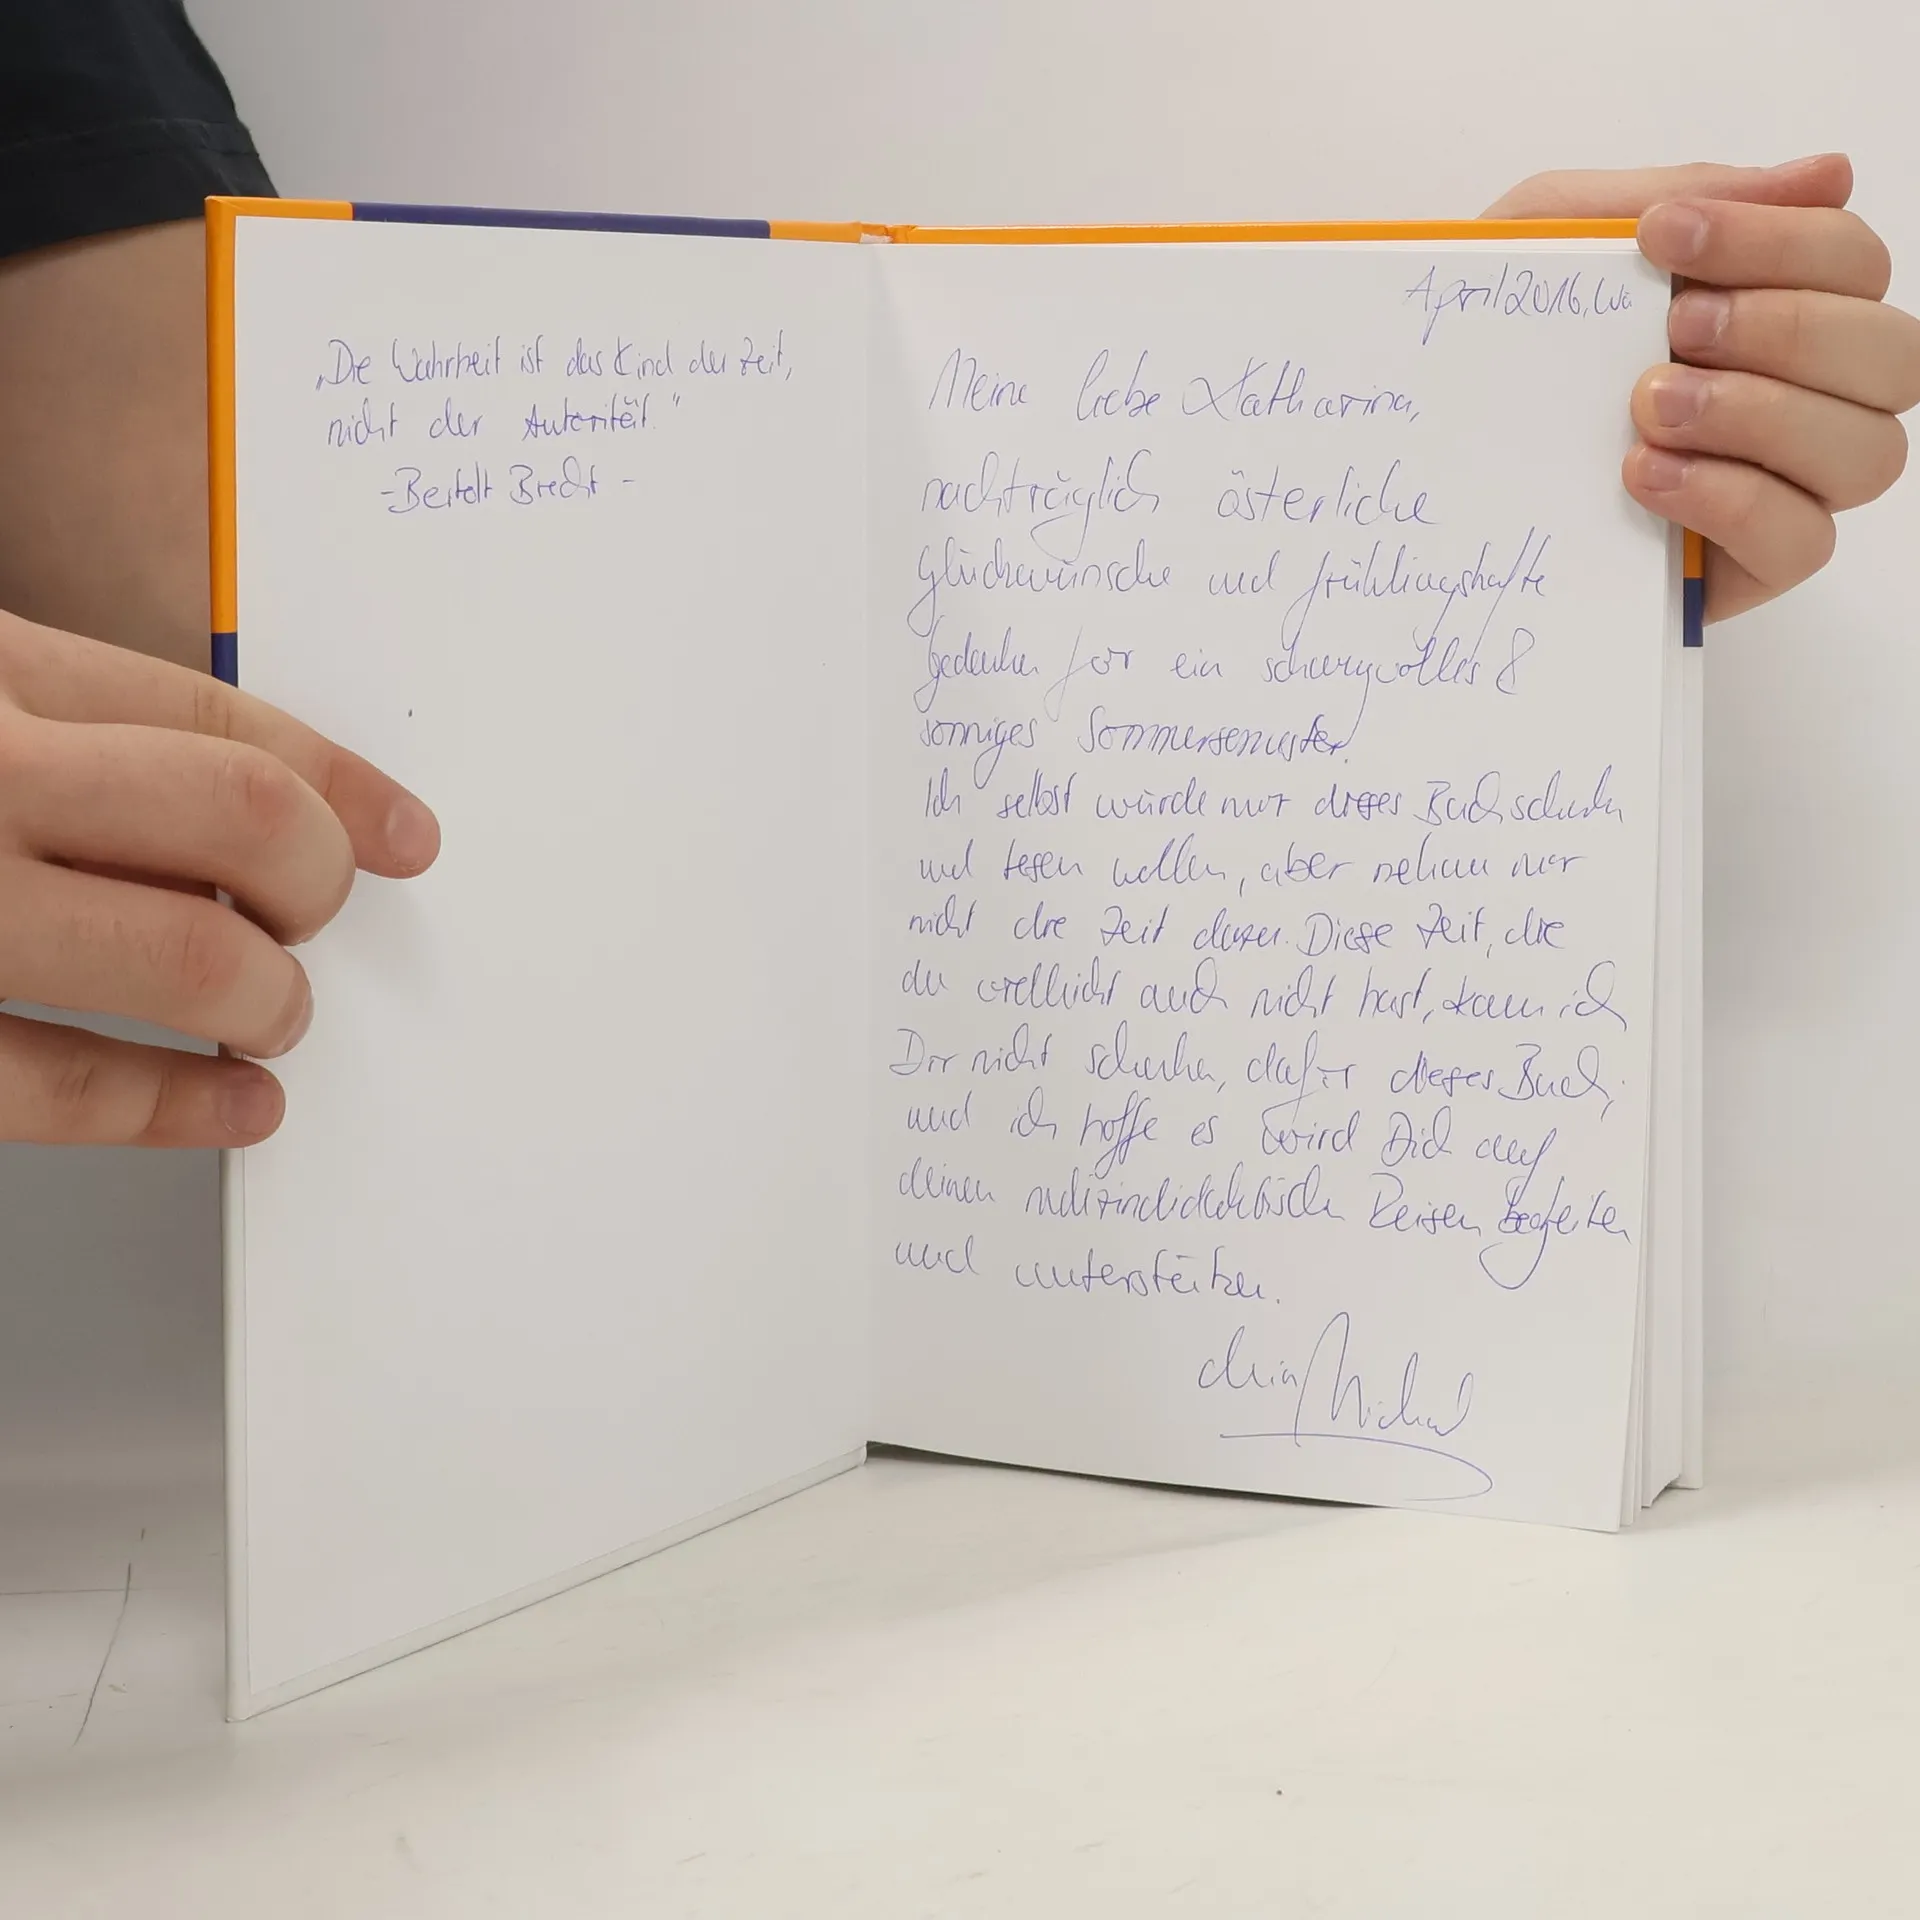 „Die Wahrheit ist das Kind der Zeit,
nicht der Autorität."
-Bertolt Brecht -
April 2016, Wü
Meine liebe Katharina,
nachträglich österliche
Glückwünsche und frühlingshafte
Gedanken für ein schwungvolles &
sonniges Sommersemester.
Ich selbst würde mir dieses Buch schenken
und lesen wollen, aber nehme mir
nicht die Zeit dazu. Diese Zeit, die
du vielleicht auch nicht hast, kann ich
Dir nicht schenken, dafür dieses Buch,
und ich hoffe es wird Dich auf
deinen medizindidaktischen Reisen begleiten
und unterstützen.
dein Michael